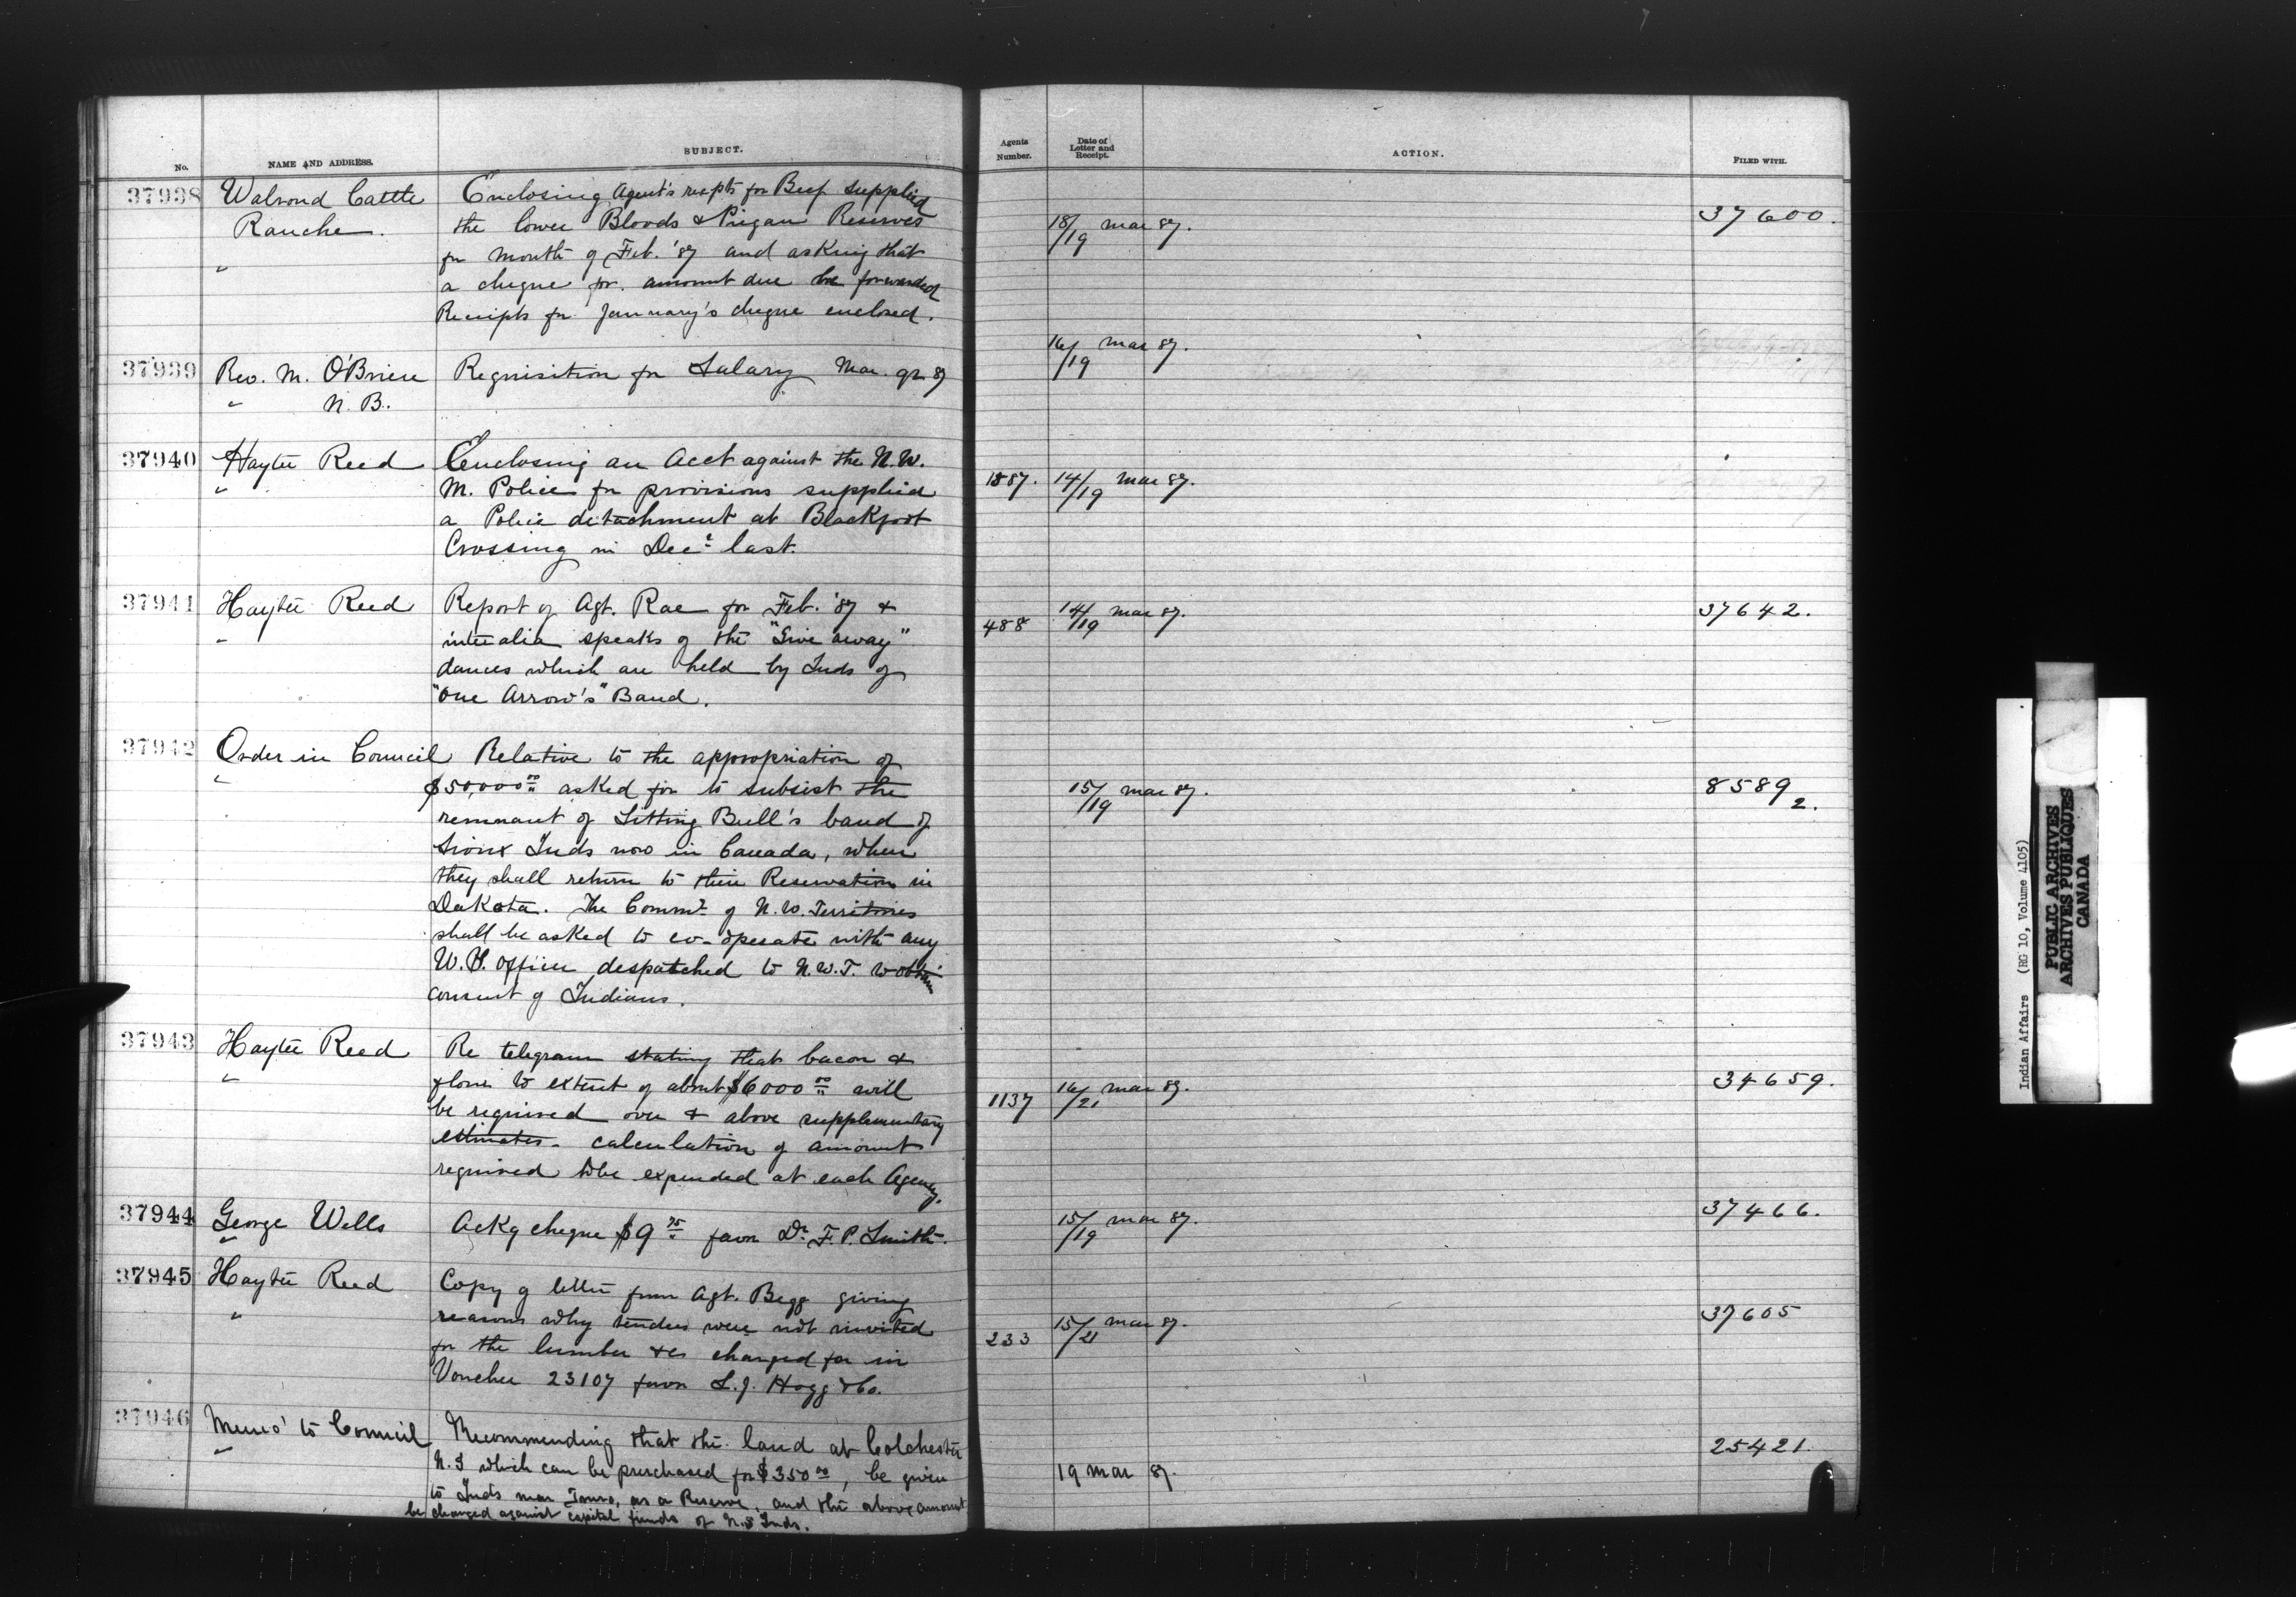 No. NAME AND ADDRESS. SUBJECT. Agents Number. Date of Letter and Receipt. ACTION. FILED WITH.
37938 Walrond Cattle Enclosing Agent's recpts for Beef supplied
Ranche. the lower Bloods & Piegan Reserves 18/19 mar 87. 37600.
" for month of Feb. '87 and asking that
a cheque for amount due be forwarded
Receipts for January's cheque enclosed.
37939 Rev. M. O'Brien Requisition for Salary Mar. qr 87 16/19 mar 87.
" N. B.
37940 Hayter Reed Enclosing an Acct against the N.W.
" M. Police for provisions supplied 1887. 14/19 mar 87.
a Police detachment at Blackfoot
Crossing in Decr last.
37941 Hayter Reed Report of Agt. Rae for Feb. '87 & 488 14/19 mar 87. 37642.
" inter alia speaks of the "Give away"
dances which are held by Inds of
"One Arrow's" Band.
37942 Order in Council Relative to the appropriation of
" $50,000 00 asked for to subsist the 15/19 mar 87. 8589 2.
remnant of Sitting Bull's band of
Sioux Inds now in Canada, when
they shall return to their Reservation in
Dakota. The Commr of N.W. Territories
shall be asked to co-operate with any
U.S. Officer despatched to N.W.T. to obtain
consent of Indians.
37943 Hayter Reed Re telegram stating that bacon &
" flour to extent of about $6000 00 will 1137 16/21 mar 87. 34659.
be required over & above supplementary
estimates - calculation of amount
required to be expended at each Agency.
37944 George Wells Ackg cheque $9 75 favor Dr. F. P. Smith. 15/19 mar 87. 37466.
"
37945 Hayter Reed Copy of letter from Agt. Begg giving
" reasons why tenders were not invited 233 15/21 mar 87. 37605
for the lumber &c charged for in
Voucher 23107 favor L. J. Hogg & Co.
37946 Memo' to Council Recommending that the land at Colchester 25421.
" N.S which can be purchased for $350 00, be given 19 mar 87.
to Inds near Truro, as a Reserve, and the above amount
be charged against capital funds of N.S Inds.
Indian Affairs (RG 10, Volume 4105)
PUBLIC ARCHIVES
ARCHIVES PUBLIQUES
CANADA